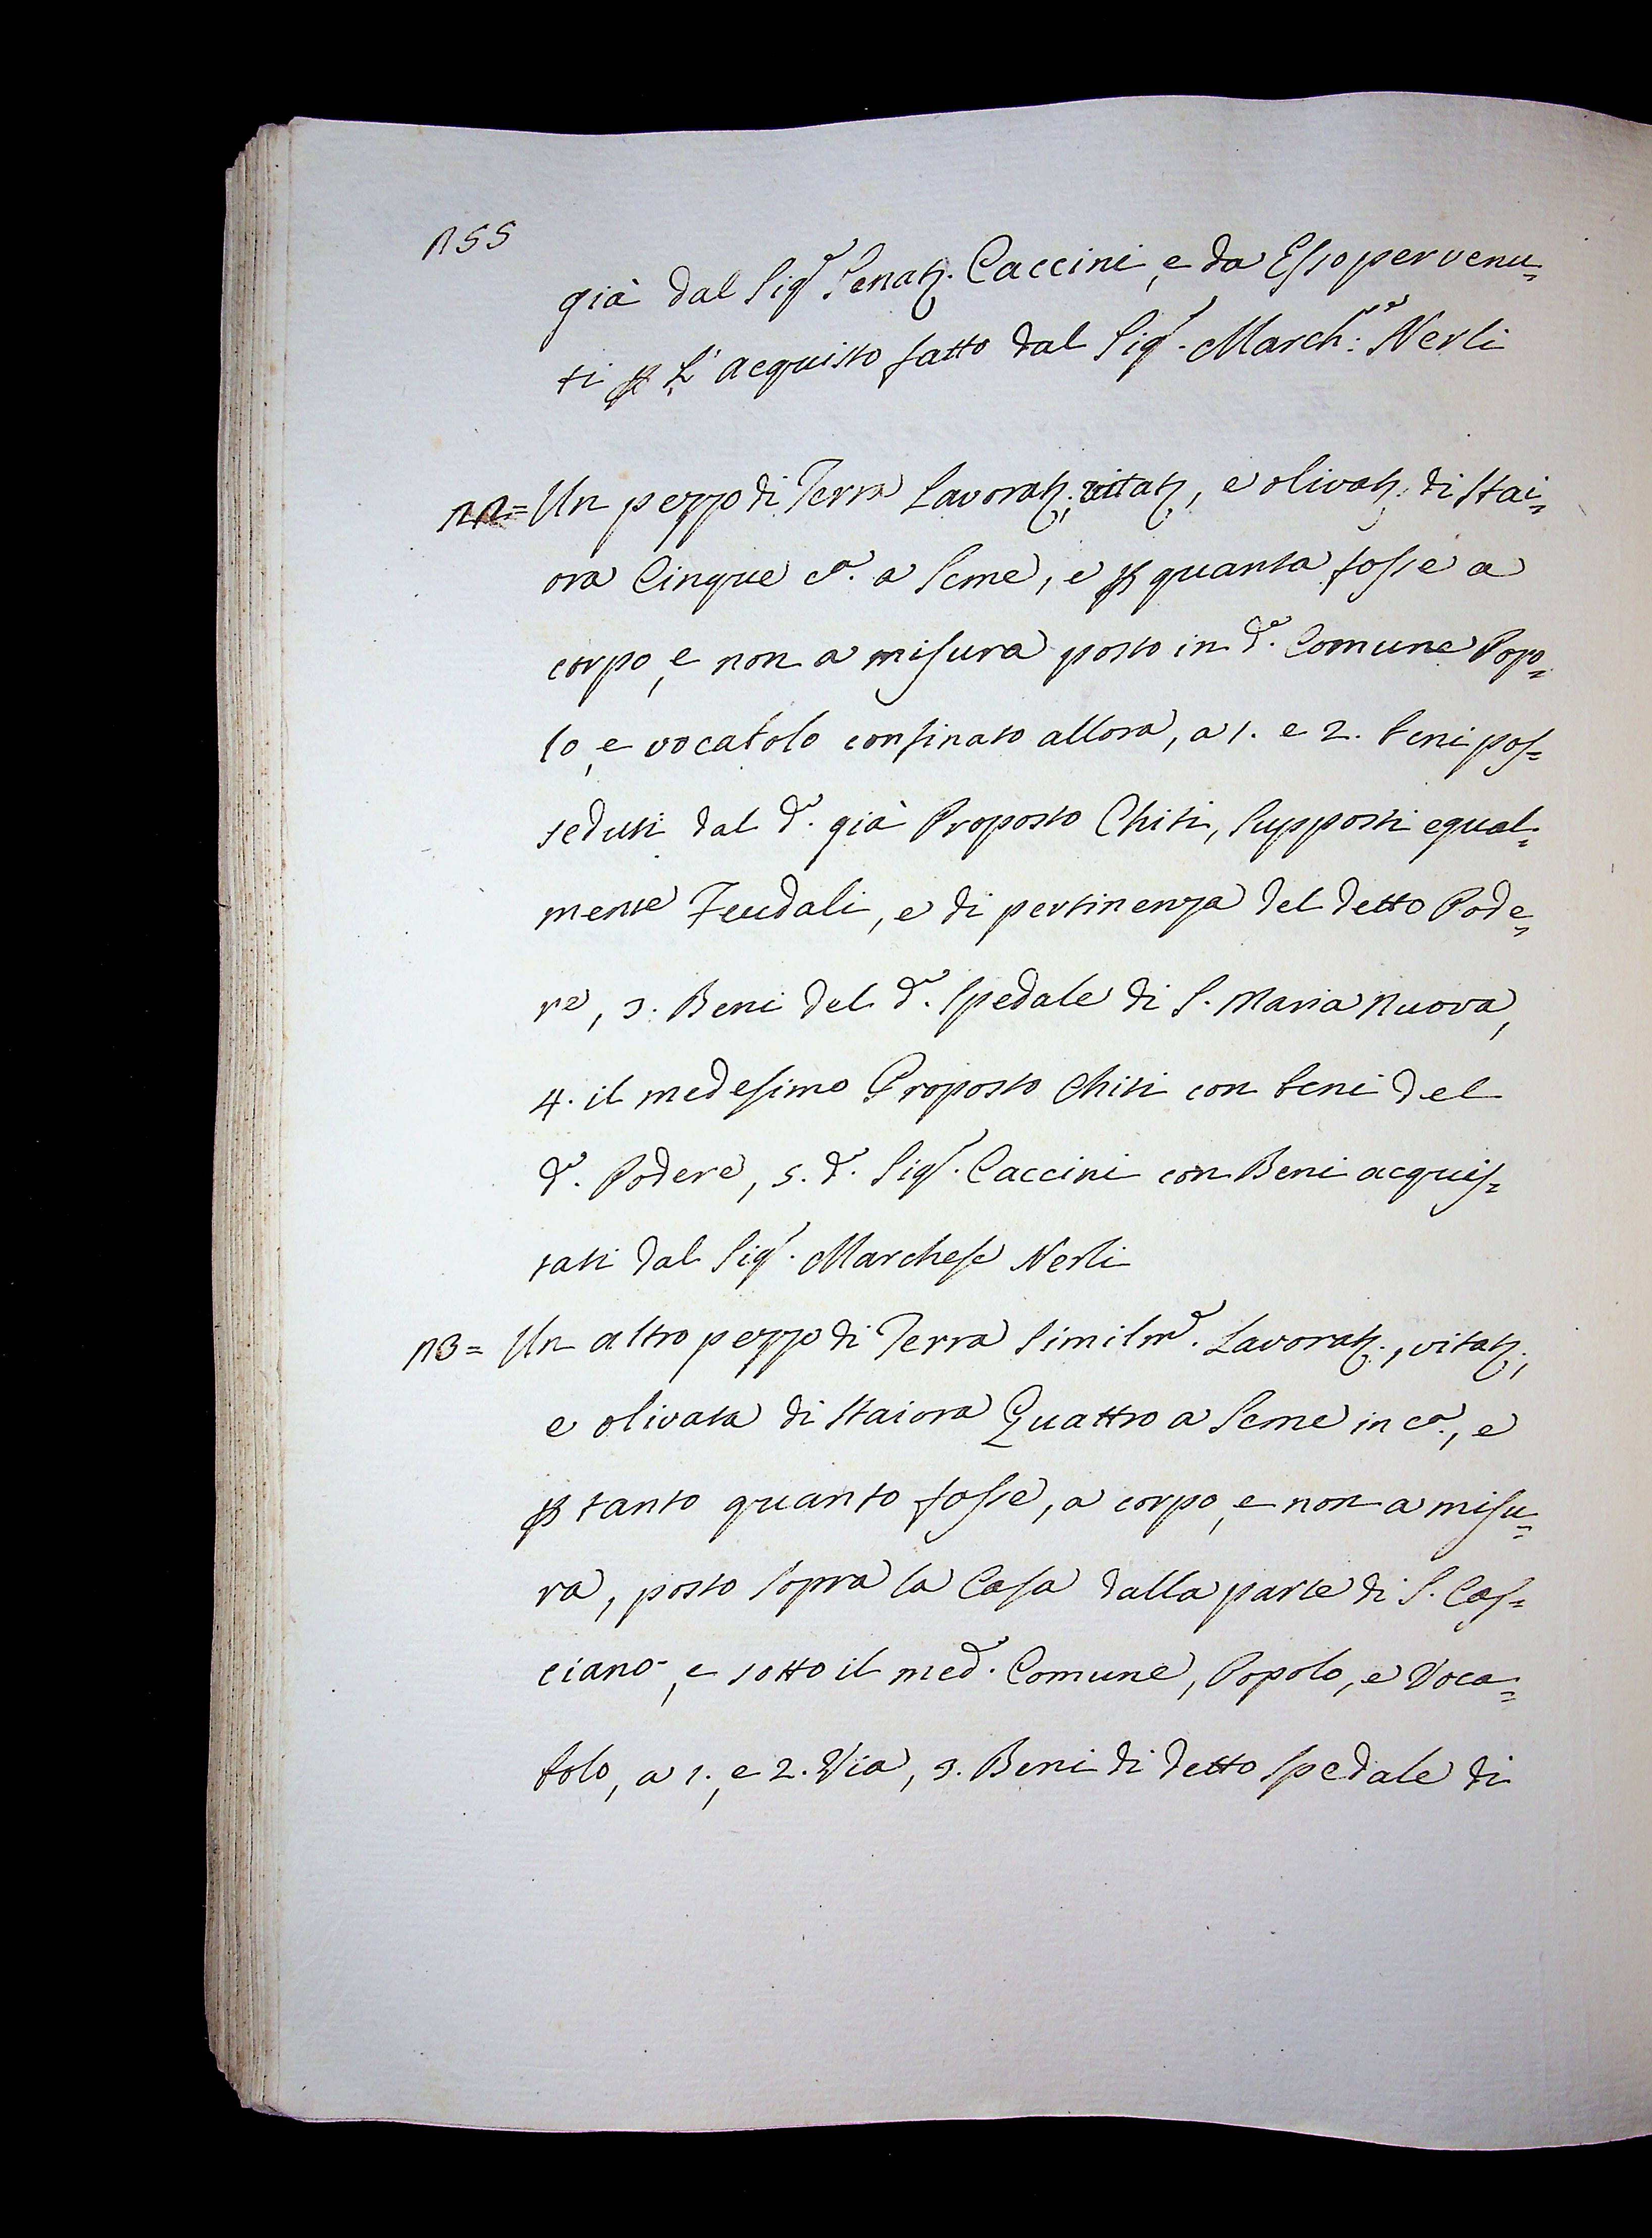 155
già dal Sig.r Senat. Caccini, e da Esso pervenu=
ti p L'acquisto fatto dal Sig.r March:se Nerli
12= Un pezzo di Terra Lavorat. vitat., e olivat. di Stai=
ora Cinque ca. a Seme, e p quanta fosse a
corpo, e non a misura posto in do. Comune Popo=
lo, e vocabolo confinato allora, a 1. e 2. beni pos=
seduti dal do. già Proposto Chiti, Supposti equal=
mente Feudali, e di pertinenza del detto Pode=
re, 3. Beni del do. Spedale di S. Maria Nuova,
4. il medesimo Proposto Chiti con beni del
do. Podere, 5. do. Sigr. Caccini con Beni acquis=
tati dal Sigr. Marchese Nerli
13= Un altro pezzo di Terra Similme. Lavorat., vitat.,
e olivata di Staiora Quattro a Seme in ca., e
p tanto quanto fosse, a corpo, e non a misu=
ra, posto Sopra la Casa dalla parte di S. Cas=
ciano, e sotto il medo. Comune, Popolo, e Voca=
bolo, a 1., e 2. Via, 3. Beni di detto Spedale di